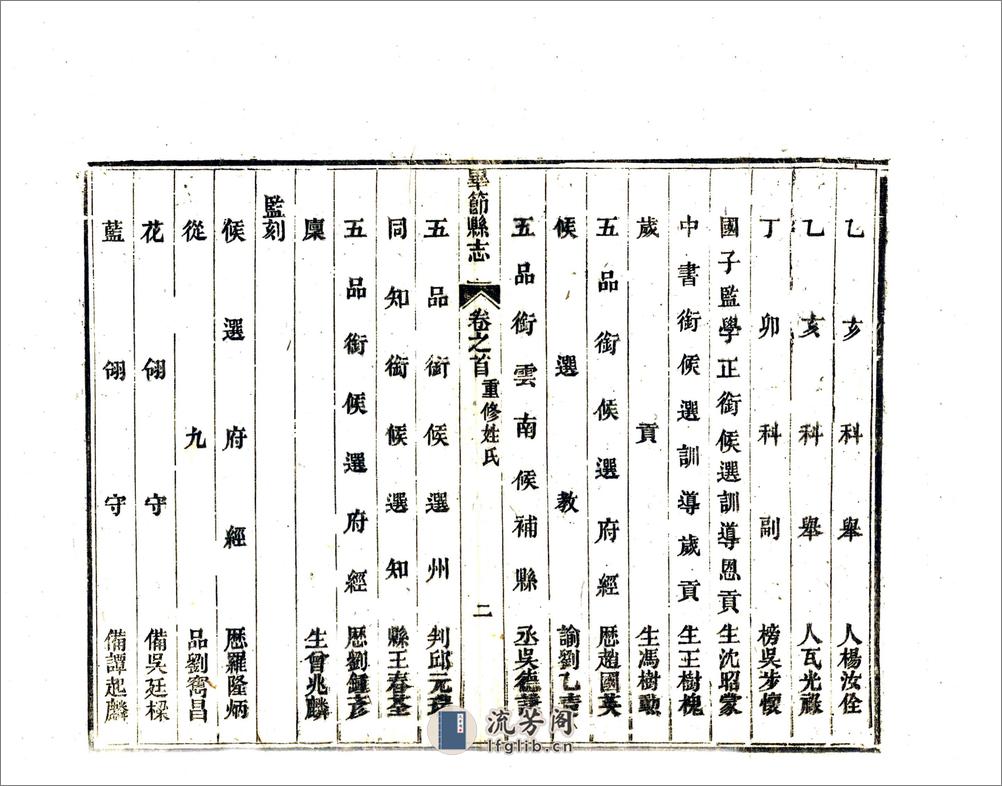 乙亥科舉人楊汝佺
乙亥科舉人瓦光祿
丁卯科副榜吳步懷
國子監學正銜候選訓導恩貢生沈昭蒙
中書銜候選訓導歲貢生王樹槐
歲貢生馮樹勳
五品銜候選府經歷趙國英
候選教諭劉乙
五品銜雲南候補縣丞吳德
畢節縣志 卷之首 重修姓氏 二
五品銜候選州判邱元
同知銜候選知縣王春荃
五品銜候選府經歷劉鍾彥
廩生曾兆麟
監刻
候選府經歷羅隆炳
從九品劉騫昌
花翎守備吳廷樑
藍翎守備譚起麟
流芳阁
lfglib.cn